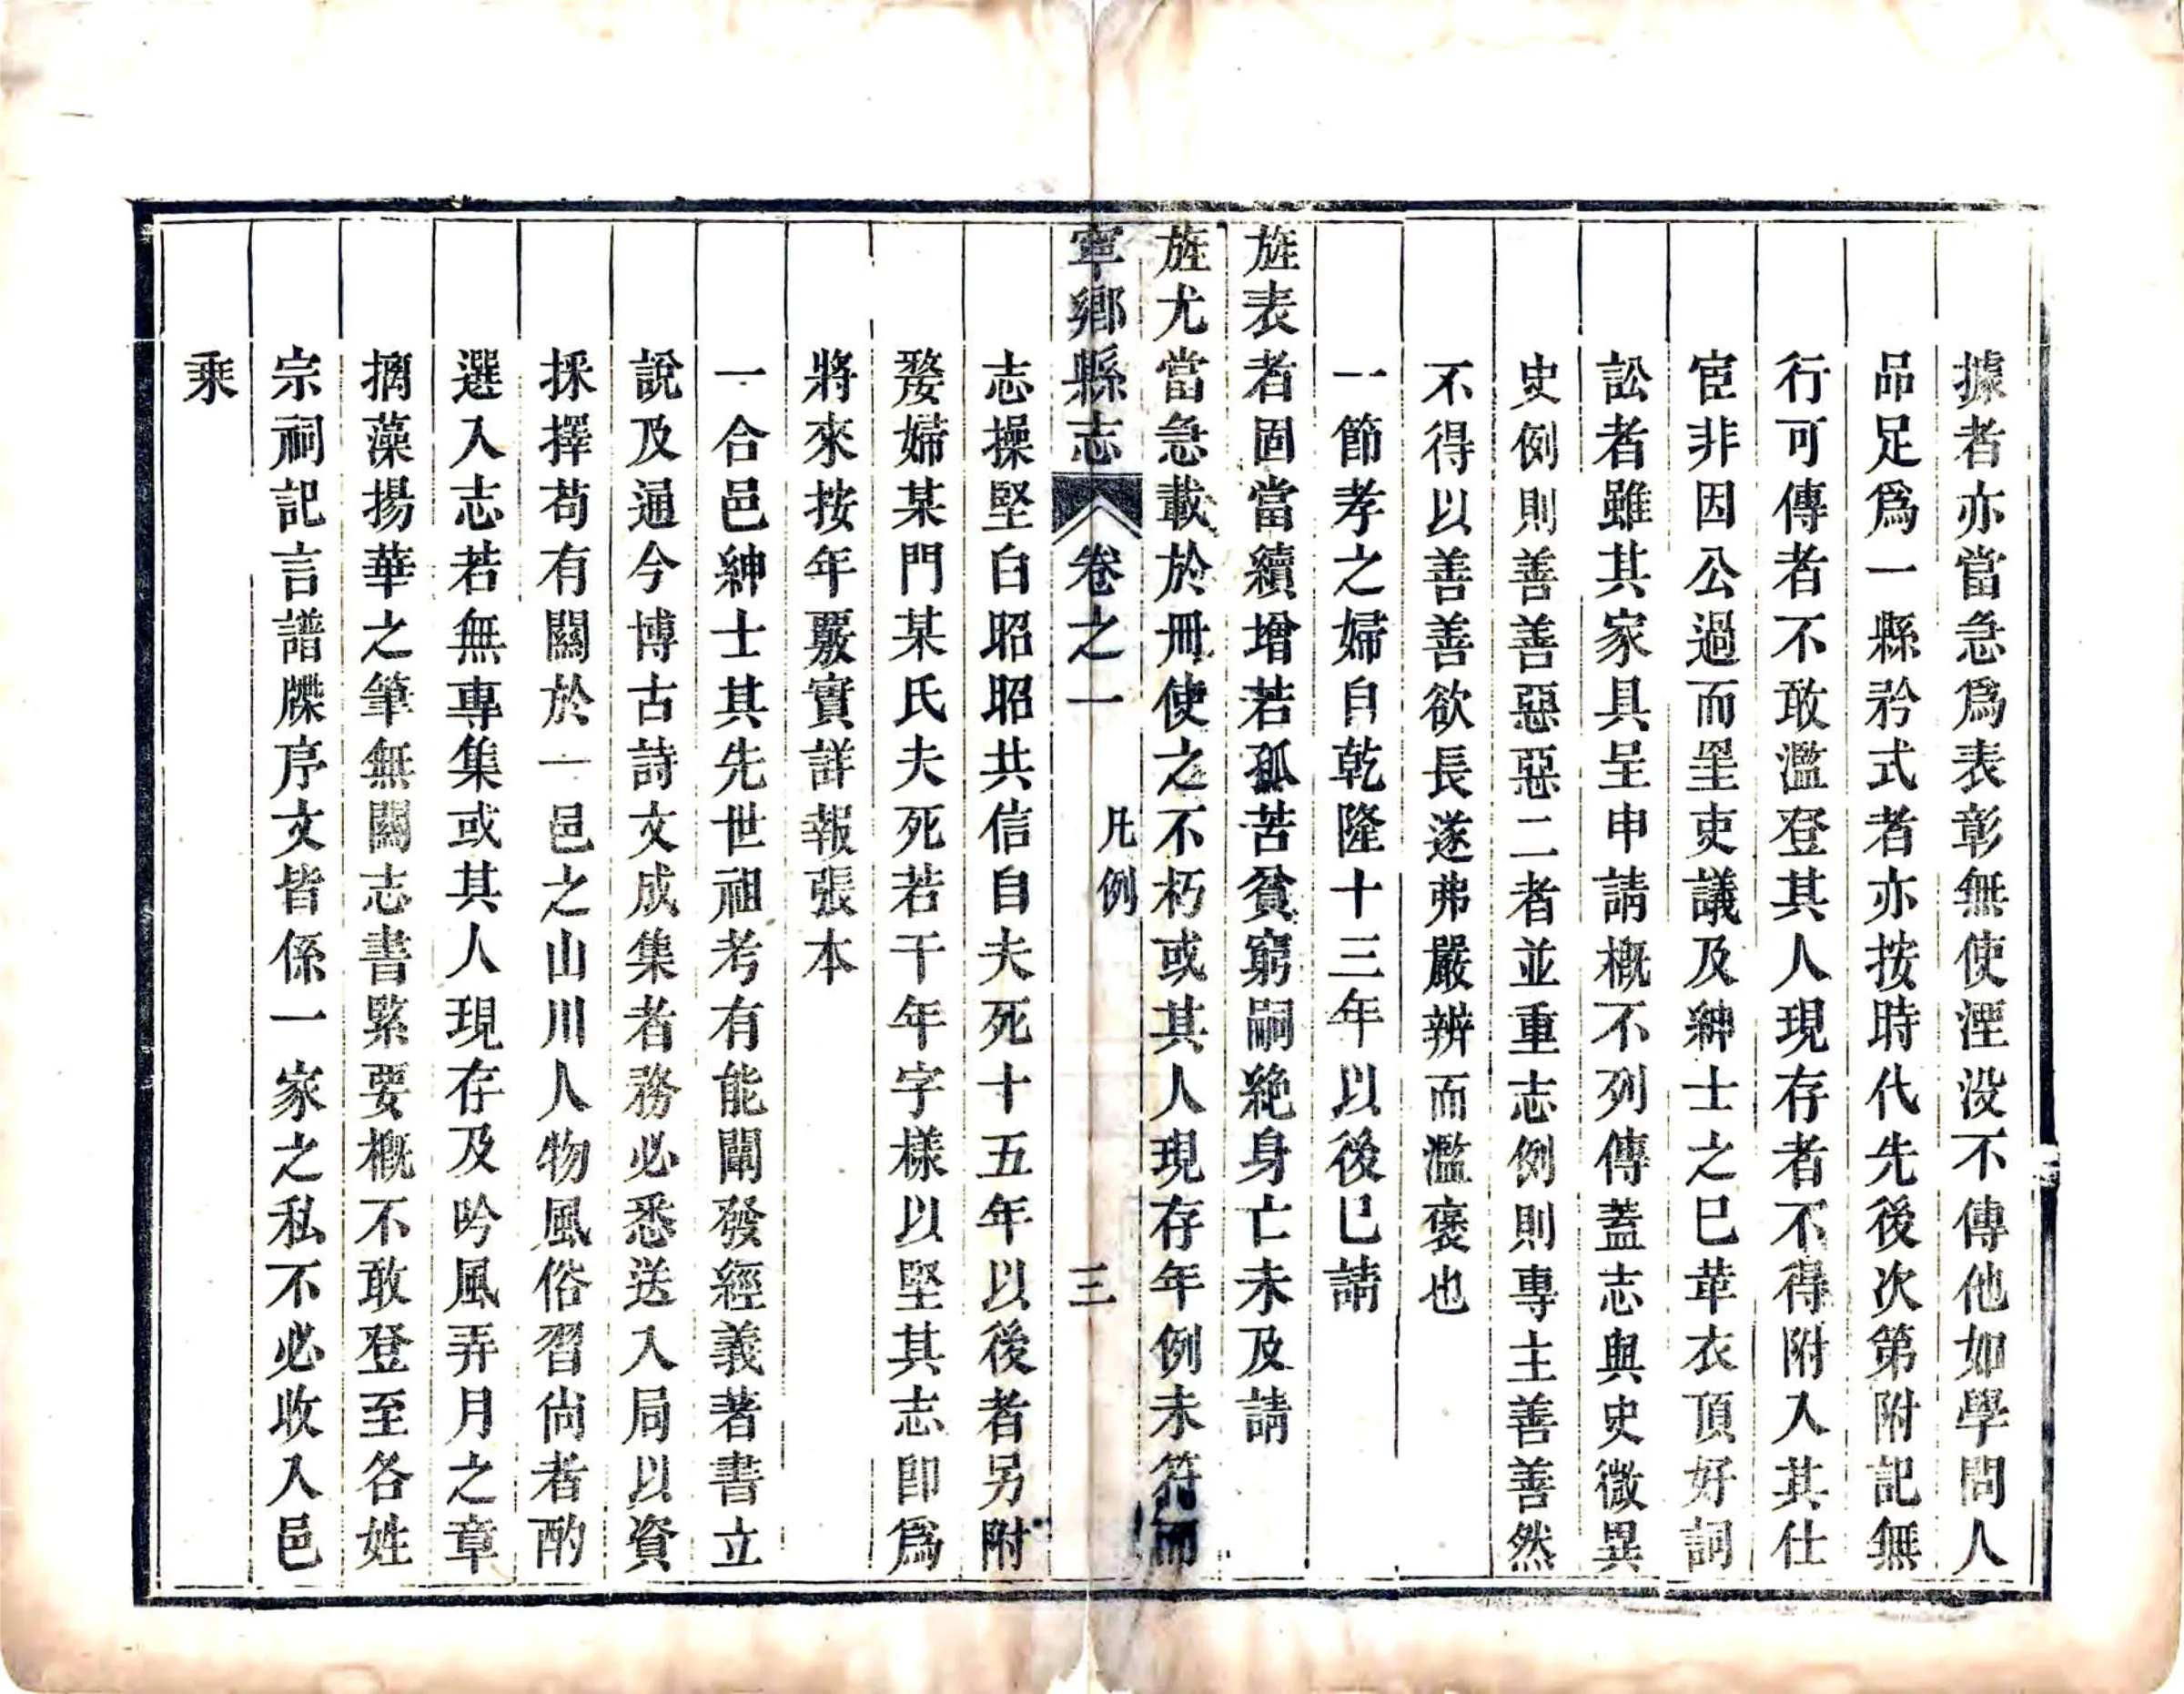 據者亦當急爲表彰無使湮没不傳他如學問人
品足爲一縣矜式者亦按時代先後次第附記無
行可傳者不敢濫登其人現存者不得附入其仕
宦非因公過而罣吏議及紳士之已革衣頂好詞
訟者雖其家具呈申請概不列傳蓋志與史微異
史例則善善惡惡二者並重志例則專主善善然
不得以善善欲長遂弗嚴辨而濫褒也
一節孝之婦自乾隆十三年以後已請
旌表者固當續增若孤苦貧窮嗣絶身亡未及請
旌尤當急載於冊使之不朽或其人現存年例未符而
寧鄉縣志 卷之一 凡例 三
志操堅白昭昭共信自夫死十五年以後者另附
嫠婦某門某氏夫死若干年字樣以堅其志卽爲
將來按年覈實詳報張本
一合邑紳士其先世祖考有能闡發經義著書立
說及通今博古詩文成集者務必悉送入局以資
採擇苟有關於一邑之山川人物風俗習尙者酌
選入志若無專集或其人現存及吟風弄月之章
摛藻揚華之筆無關志書緊要概不敢登至各姓
宗祠記言譜牒序文皆係一家之私不必收入邑
乘